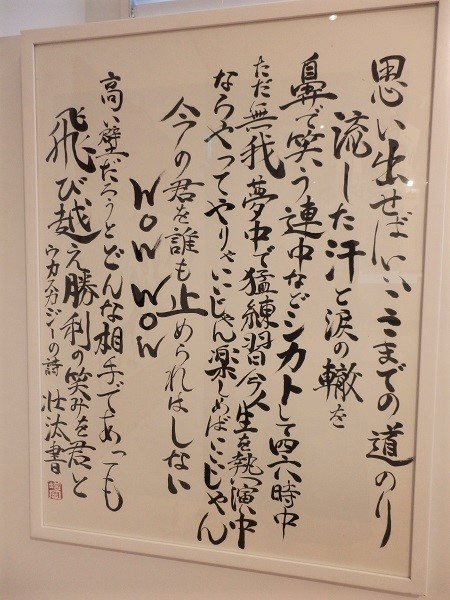 思い出せばいい ここまでの道のり
流した汗と涙の轍を
鼻で笑う連中などシカトして四六時中
ただ無我夢中で猛練習 人生を熱演中
ならやってやりゃいいじゃん 楽しめばいいじゃん
今の君を誰も止められはしない
wow wow
高い壁だろうとどんな相手であっても
飛び越え勝利の笑みを君と
ウカスカジーの詩 壮汰書